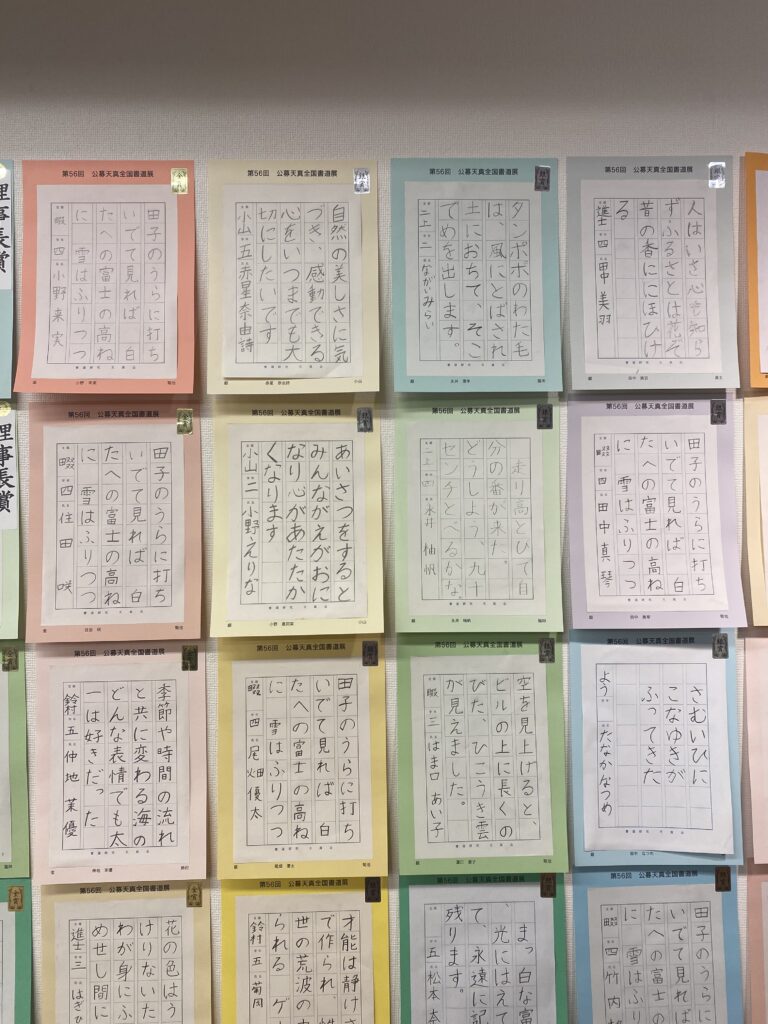 理事長賞
第56回 公募天真全国書道展
金賞
田子のうらに打ち
いでて見れば 白
たへの富士の高ね
に 雪はふりつつ
四 小野来実
第56回 公募天真全国書道展
銀賞
自然の美しさに気
づき、感動できる
心をいつまでも大
切にしたいです
小山 五 赤星奈由詩
小山
第56回 公募天真全国書道展
銀賞
タンポポのわた毛
は、風にとばされ
土におちて、そこ
でめを出します。
二上 二 ながいみらい
第56回 公募天真全国書道展
銀賞
人はいさ心も知ら
ずふるさとは花ぞ
昔の香ににほひけ
る
進士 四 田中美羽
理事長賞
第56回 公募天真全国書道展
田子のうらに打ち
いでて見れば 白
たへの富士の高ね
に 雪はふりつつ
四 住田 咲
第56回 公募天真全国書道展
あいさつをすると
みんながえがおに
なり心があたたか
くなります
小山 二 小野えりな
小山
第56回 公募天真全国書道展
走り高とびで自
分の番が来た。
どうしよう、九十
センチとべるかな。
二上 四 永井 柚帆
第56回 公募天真全国書道展
田子のうらに打ち
いでて見れば 白
たへの富士の高ね
に 雪はふりつつ
四 田中真琴
第56回 公募天真全国書道展
季節や時間の流れ
と共に変わる海の
どんな表情でも太
一は好きだった
鈴村 五 仲地 茉優
第56回 公募天真全国書道展
田子のうらに打ち
いでて見れば 白
たへの富士の高ね
に 雪はふりつつ
四 尾畑優太
第56回 公募天真全国書道展
空を見上げると、
ビルの上に長くの
びた、ひこうき雲
が見えました。
三 はま口 あい子
第56回 公募天真全国書道展
さむいひに
こなゆきが
ふってきた
よう たなかなつめ
第56回 公募天真全国書道展
金賞
花の色はう
けりないた
わが身にふ
めせし間に
進士 三 はぎひ
第56回 公募天真全国書道展
才能は静けさ
で作られ、性
世の荒波の中
られる ゲー
鈴村 五 菊岡
第56回 公募天真全国書道展
まっ白な富
、光にはえて
て、永遠に記
残ります。
五 松本奈
第56回 公募天真全国書道展
田子のうらに
いでて見れば
たへの富士の
に 雪はふり
四 竹内